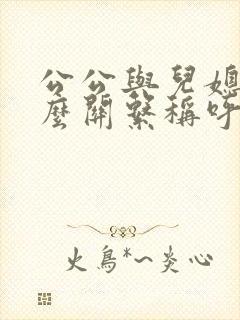 公公與兒媳
麼關繫稱呼
火鳥*~炎心